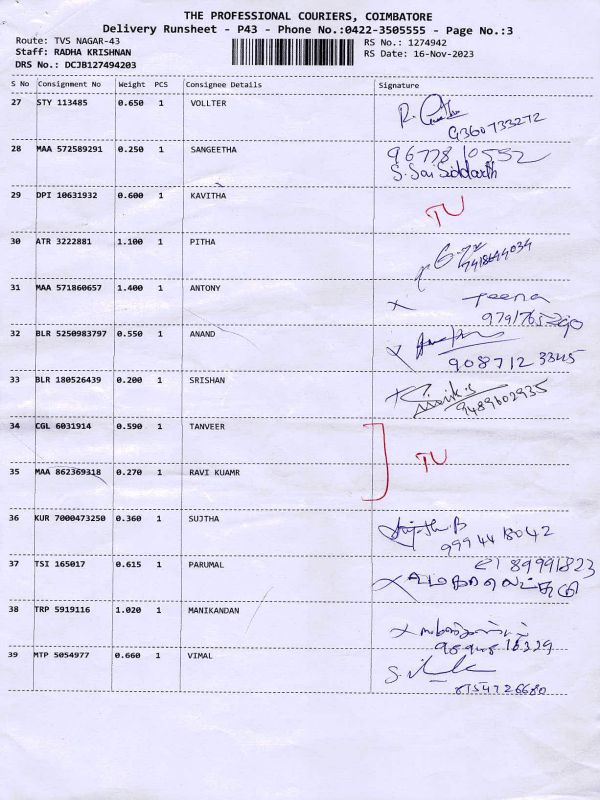 THE PROFESSIONAL COURIERS, COIMBATORE
Delivery Runsheet - P43 - Phone No.:0422-3505555 - Page No.:3
Route: TVS NAGAR-43 RS No.: 1274942
Staff: RADHA KRISHNAN RS Date: 16-Nov-2023
DRS No.: DCJB127494203
S No Consignment No Weight PCS Consignee Details Signature
27 STY 113485 0.650 1 VOLLTER
9360733272
28 MAA 572589291 0.250 1 SANGEETHA
S. Sai Siddarth
29 DPI 10631932 0.600 1 KAVITHA
TU
30 ATR 3222881 1.100 1 PITHA
31 MAA 571860657 1.400 1 ANTONY
Teena
32 BLR 5250983797 0.550 1 ANAND
908712 3345
33 BLR 180526439 0.200 1 SRISHAN
9489602935
34 CGL 6031914 0.590 1 TANVEER
TU
35 MAA 862369318 0.270 1 RAVI KUAMR
36 KUR 7000473250 0.360 1 SUJTHA
999 44 18042
37 TSI 165017 0.615 1 PARUMAL
89991823
38 TRP 5919116 1.020 1 MANIKANDAN
39 MTP 5054977 0.660 1 VIMAL